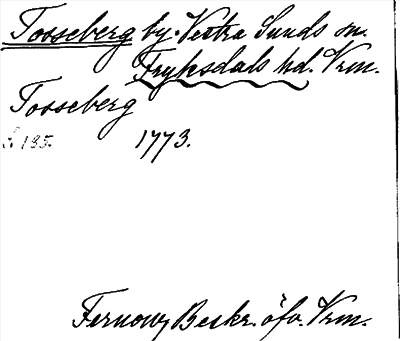 Tosseberg by. Vestra Sunds sn.
Fryksdals hd. Vrm.
Tosseberg
s. 135. 1773.
Fernow, Beskr. öfv. Vrm.